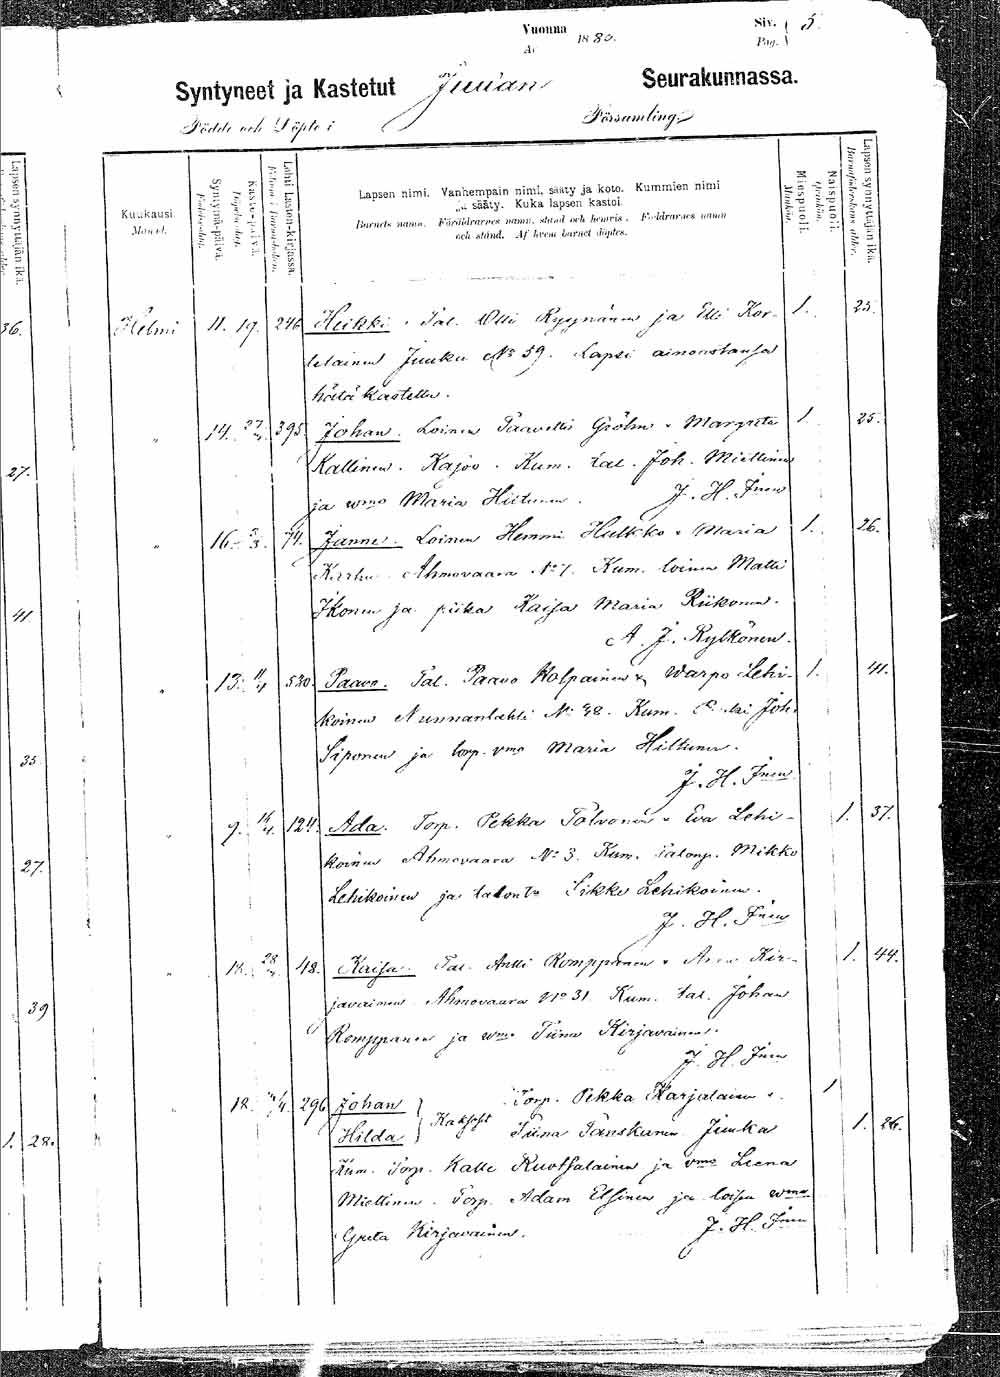 Vuonna 1880.
År
Siv. 5.
Pag.
Syntyneet ja Kastetut Juuan Seurakunnassa.
Födde och Döpte i Församling.
Kuukausi.
Månad.
Syntymä-päivä.
Födelsedag.
Kaste-päivä.
Lehti Lasten-kirjassa.
Lapsen nimi. Vanhempain nimi, sääty ja koto. Kummien nimi
ja sääty. Kuka lapsen kastoi.
Barnets namn. Föräldrarnes namn, stånd och hemvis. Faddrarnes namn
och stånd. Af hvem barnet döptes.
Miespuoli.
Mankön.
Naispuoli.
Qvinkön.
Lapsen synnyttäjän ikä.
Barnaföderskans ålder.
Lapsen synnyttäjän ikä.
36. Helmi 11. 19. 246 Heikki. Tal. Olli Ryynänen ja Elli Kor- 1. 25.
telainen Juuka No 59. Lapsi ainoastansa
hätäkastettu.
" 14. 395. Johan. Loinen Paavetti Gröhn & Margreta 1. 25.
27. Kallinen. Kajoo. Kum. tal. Joh. Miettinen
ja wmo Maria Hiltunen. J. H. Inen
" 16. 74. Janne. Loinen Hemmi Hulkko & Maria 1. 26.
Karhu Ahmovaara No 7. Kum. loinen Matti
41 Ikonen ja piika Kaisa Maria Riikonen.
A. J. Kytkönen.
" 13. 520. Paavo. Tal. Paavo Holpainen & Warpo Lehi- 1. 41.
koinen Nunnanlahti No 38. Kum. Joh.
35. Siponen ja torp. vmo Maria Hiltunen.
J. H. Inen
" 9. 124. Ada. Torp. Pekka Tolvonen & Eva Lehi- 1. 37.
27. koinen Ahmovaara No 3. Kum. talonp. Mikko
Lehikoinen ja Sikke Lehikoinen.
J. H. Inen
" 48. Kaisa. Tal. Antti Romppanen & Kir- 1. 44.
39 javainen Ahmovaara No 31 Kum. tal. Johan
Romppanen ja wmo Tiina Kirjavainen.
J. H. Inen
" 18. 296 Johan Torp. Pekka Karjalainen & 1
1. 28. Hilda } Kaksoset Tiina Tanskanen Juuka 1. 26.
Kum. Torp. Kalle Ruotsalainen ja vmo Leena
Miettinen. Torp. Adam Elsinen ja loisen wmo
Greta Kirjavainen. J. H. Inen